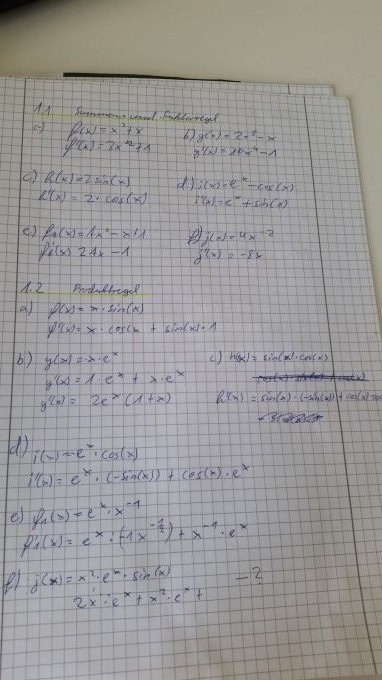 1.1 Summen- und Faktorregel
a) f(x) = x³+x b) g(x) = 2x⁵-x
f'(x) = 3x²+1 g'(x) = 10x⁴-1
c) h(x) = 2 sin(x) d) i(x) = eˣ - cos(x)
h'(x) = 2 · cos(x) i'(x) = eˣ + sin(x)
e) f₁(x) = 1x² - x + 1 f) j(x) = 4x⁻²
f₁'(x) 2x - 1 j'(x) = -8x
1.2 Produktregel
a) f(x) = x · sin(x)
f'(x) = x · cos(x) + sin(x) · 1
b) g(x) = x · eˣ c) h(x) = sin(x) · cos(x)
g'(x) = 1 · eˣ + x · eˣ
g'(x) = 2eˣ (1+x) h'(x) = sin(x) · (-sin(x)) + cos(x)
d) i(x) = eˣ · cos(x)
i'(x) = eˣ · (-sin(x)) + cos(x) · eˣ
e) f₁(x) = eˣ · x⁻¹
f₁'(x) = eˣ · (-1x⁻²) + x⁻¹ · eˣ
f) j(x) = x² · eˣ · sin(x) - ?
2x · eˣ + x² · eˣ +